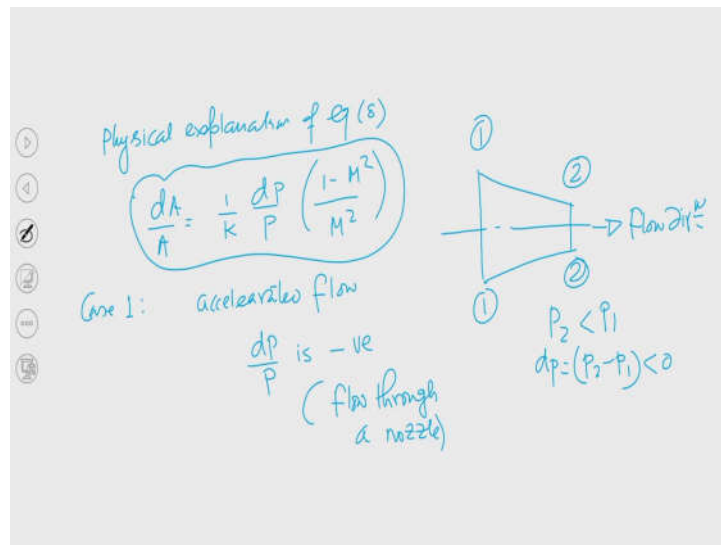 Physical explanation of eq (8)
dA/A = 1/K dP/P (1 - M²/M²)
Case 1: accelerated flow
dp/P is -ve
(flow through
a nozzle)
①
②
→ Flow dirⁿ
②
①
P₂ < P₁
dp = (P₂ - P₁) < 0